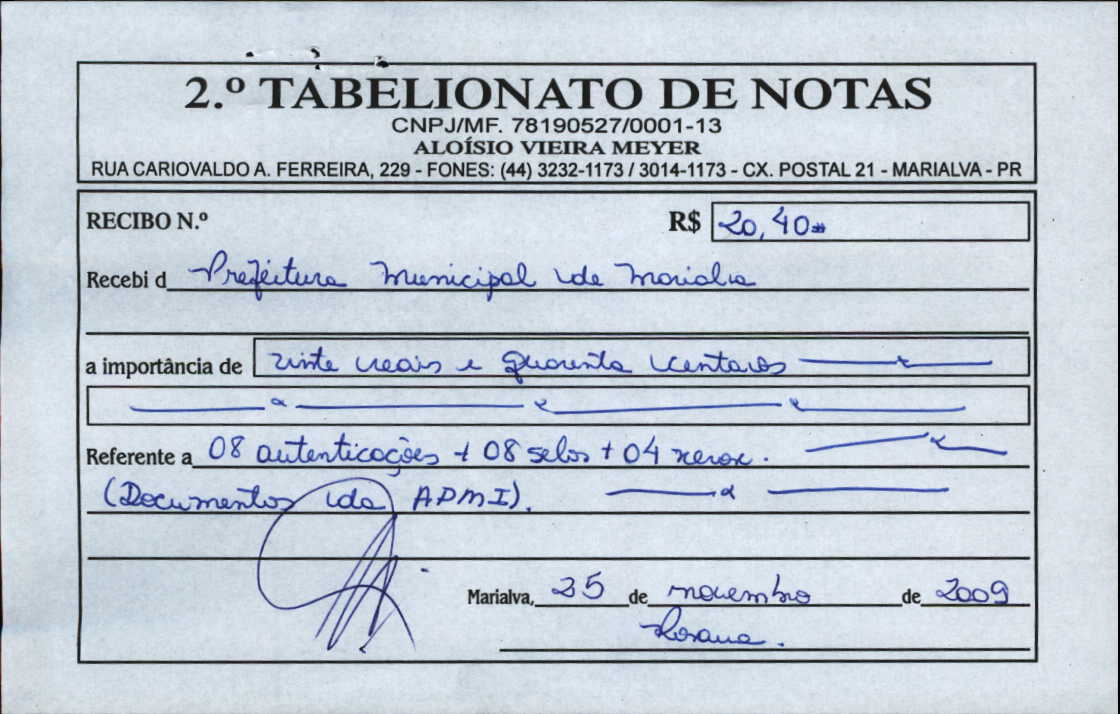 2.º TABELIONATO DE NOTAS
CNPJ/MF. 78190527/0001-13
ALOÍSIO VIEIRA MEYER
RUA CARIOVALDO A. FERREIRA, 229 - FONES: (44) 3232-1173 / 3014-1173 - CX. POSTAL 21 - MARIALVA - PR
RECIBO N.º R$ 20,40
Recebi d Prefeitura Municipal de Marialva
a importância de vinte reais e quarenta centavos
Referente a 08 autenticações + 08 selos + 04 xerox.
(Documentos da ADMI).
Marialva, 25 de novembro de 2009
Rosana.